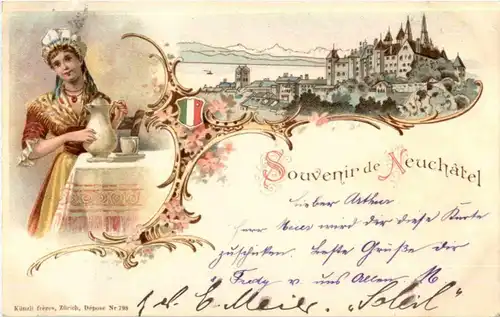 Souvenir de Neuchâtel
Lieber Arthur
Herr Meier wird dir diese Karte
zuschicken. Beste Grüße dir
Fredy v. uns Allen M
E. Meier, "Soleil"
Künzli frères, Zürich, Dépose Nr 798